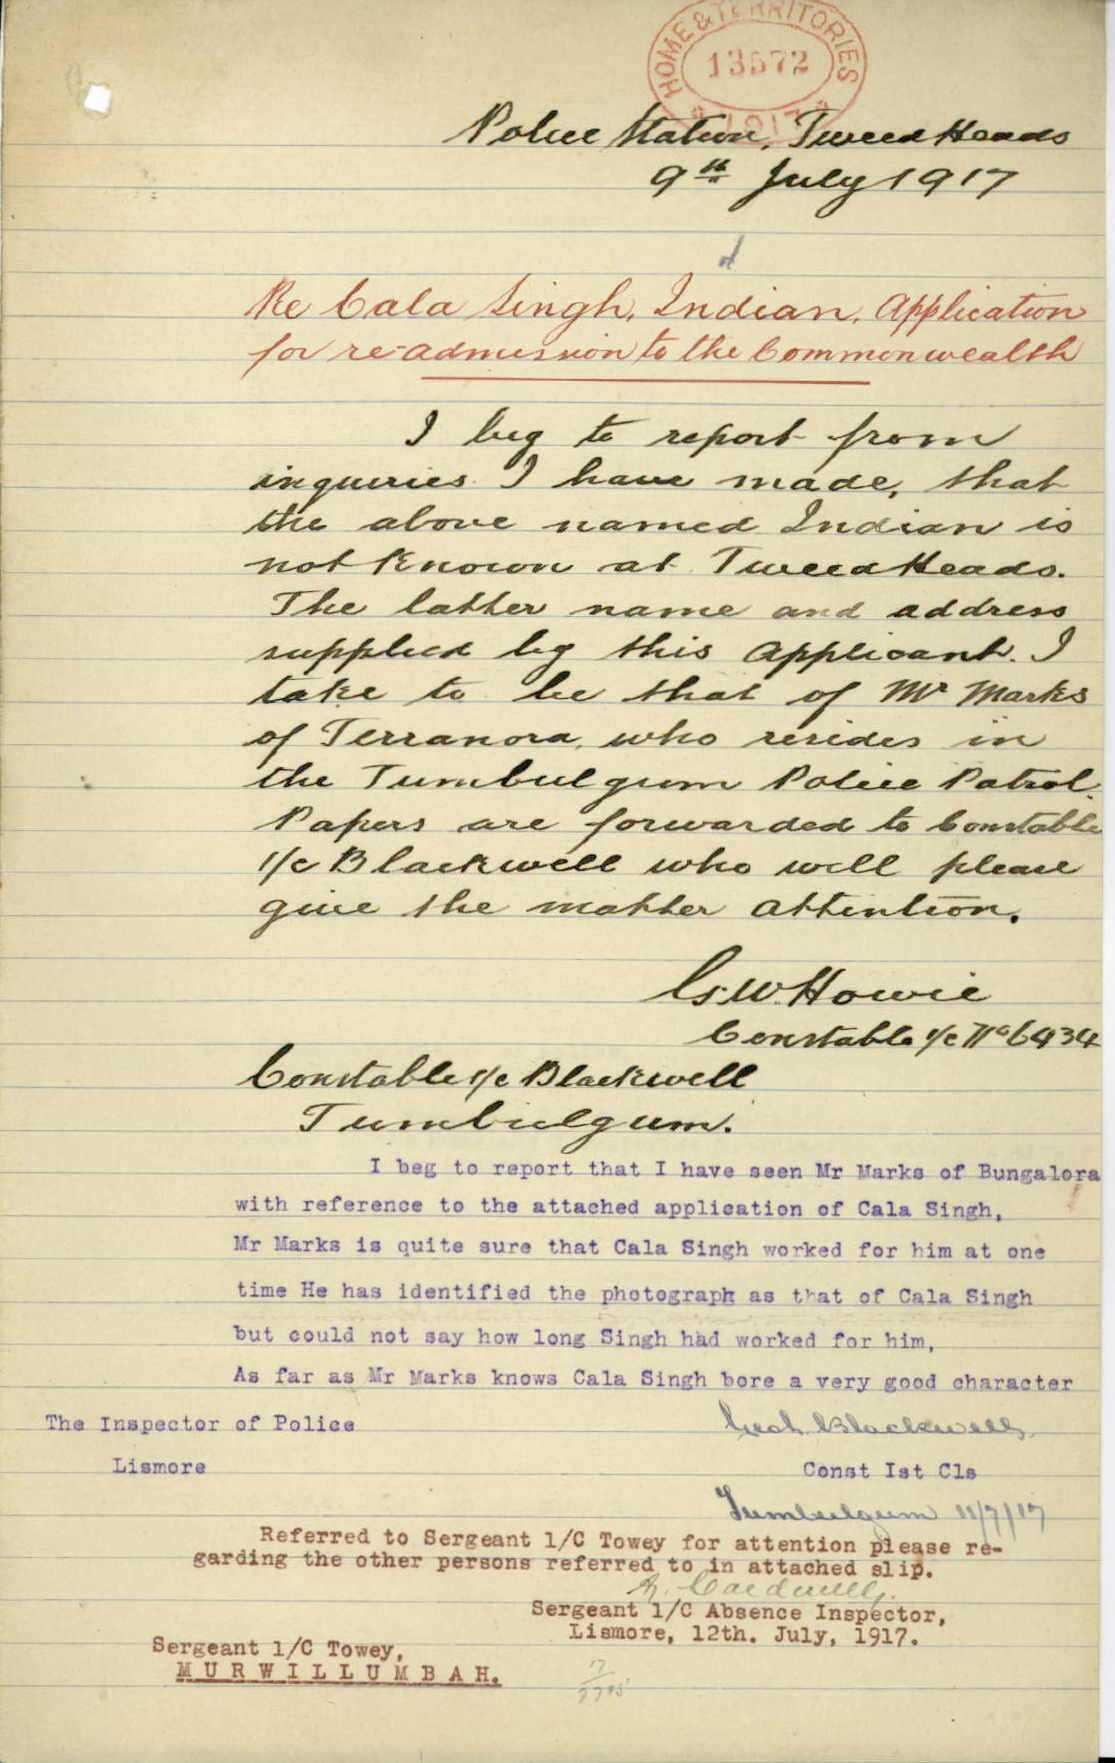 HOME & TERRITORIES
13572
1917
Police Station, Tweed Heads
9th July 1917
Re Cala Singh, Indian, Application
for re-admission to the Commonwealth
I beg to report from
inquiries I have made, that
the above named Indian is
not known at Tweed Heads.
The latter name and address
supplied by this applicant. I
take to be that of Mr Marks
of Terranora, who resides in
the Tumbulgum Police Patrol.
Papers are forwarded to Constable
1/c Blackwell who will please
give the matter attention.
G.W. Howie
Constable 1/c No 6434
Constable 1/c Blackwell
Tumbulgum.
I beg to report that I have seen Mr Marks of Bungalora
with reference to the attached application of Cala Singh,
Mr Marks is quite sure that Cala Singh worked for him at one
time He has identified the photograph as that of Cala Singh
but could not say how long Singh had worked for him,
As far as Mr Marks knows Cala Singh bore a very good character
The Inspector of Police
Blackwell
Lismore
Const Ist Cls
Tumbulgum 11/7/17
Referred to Sergeant 1/C Towey for attention please re-
garding the other persons referred to in attached slip.
Cardwell
Sergeant 1/C Absence Inspector,
Lismore, 12th. July, 1917.
Sergeant 1/C Towey,
MURWILLUMBAH.